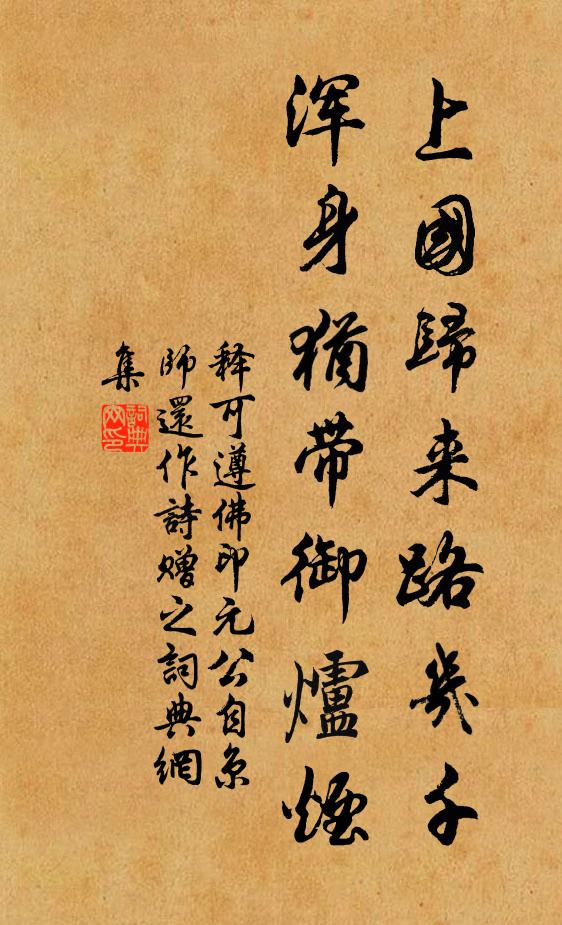 上國歸来路幾千
渾身猶帶御爐煙
释可遵佛印元公自京
師還作詩赠之詞典網
集
詞典
网印